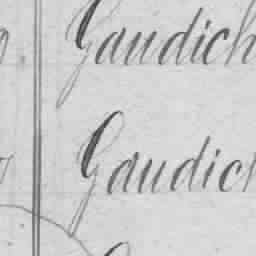 Gaudich
Gaudich